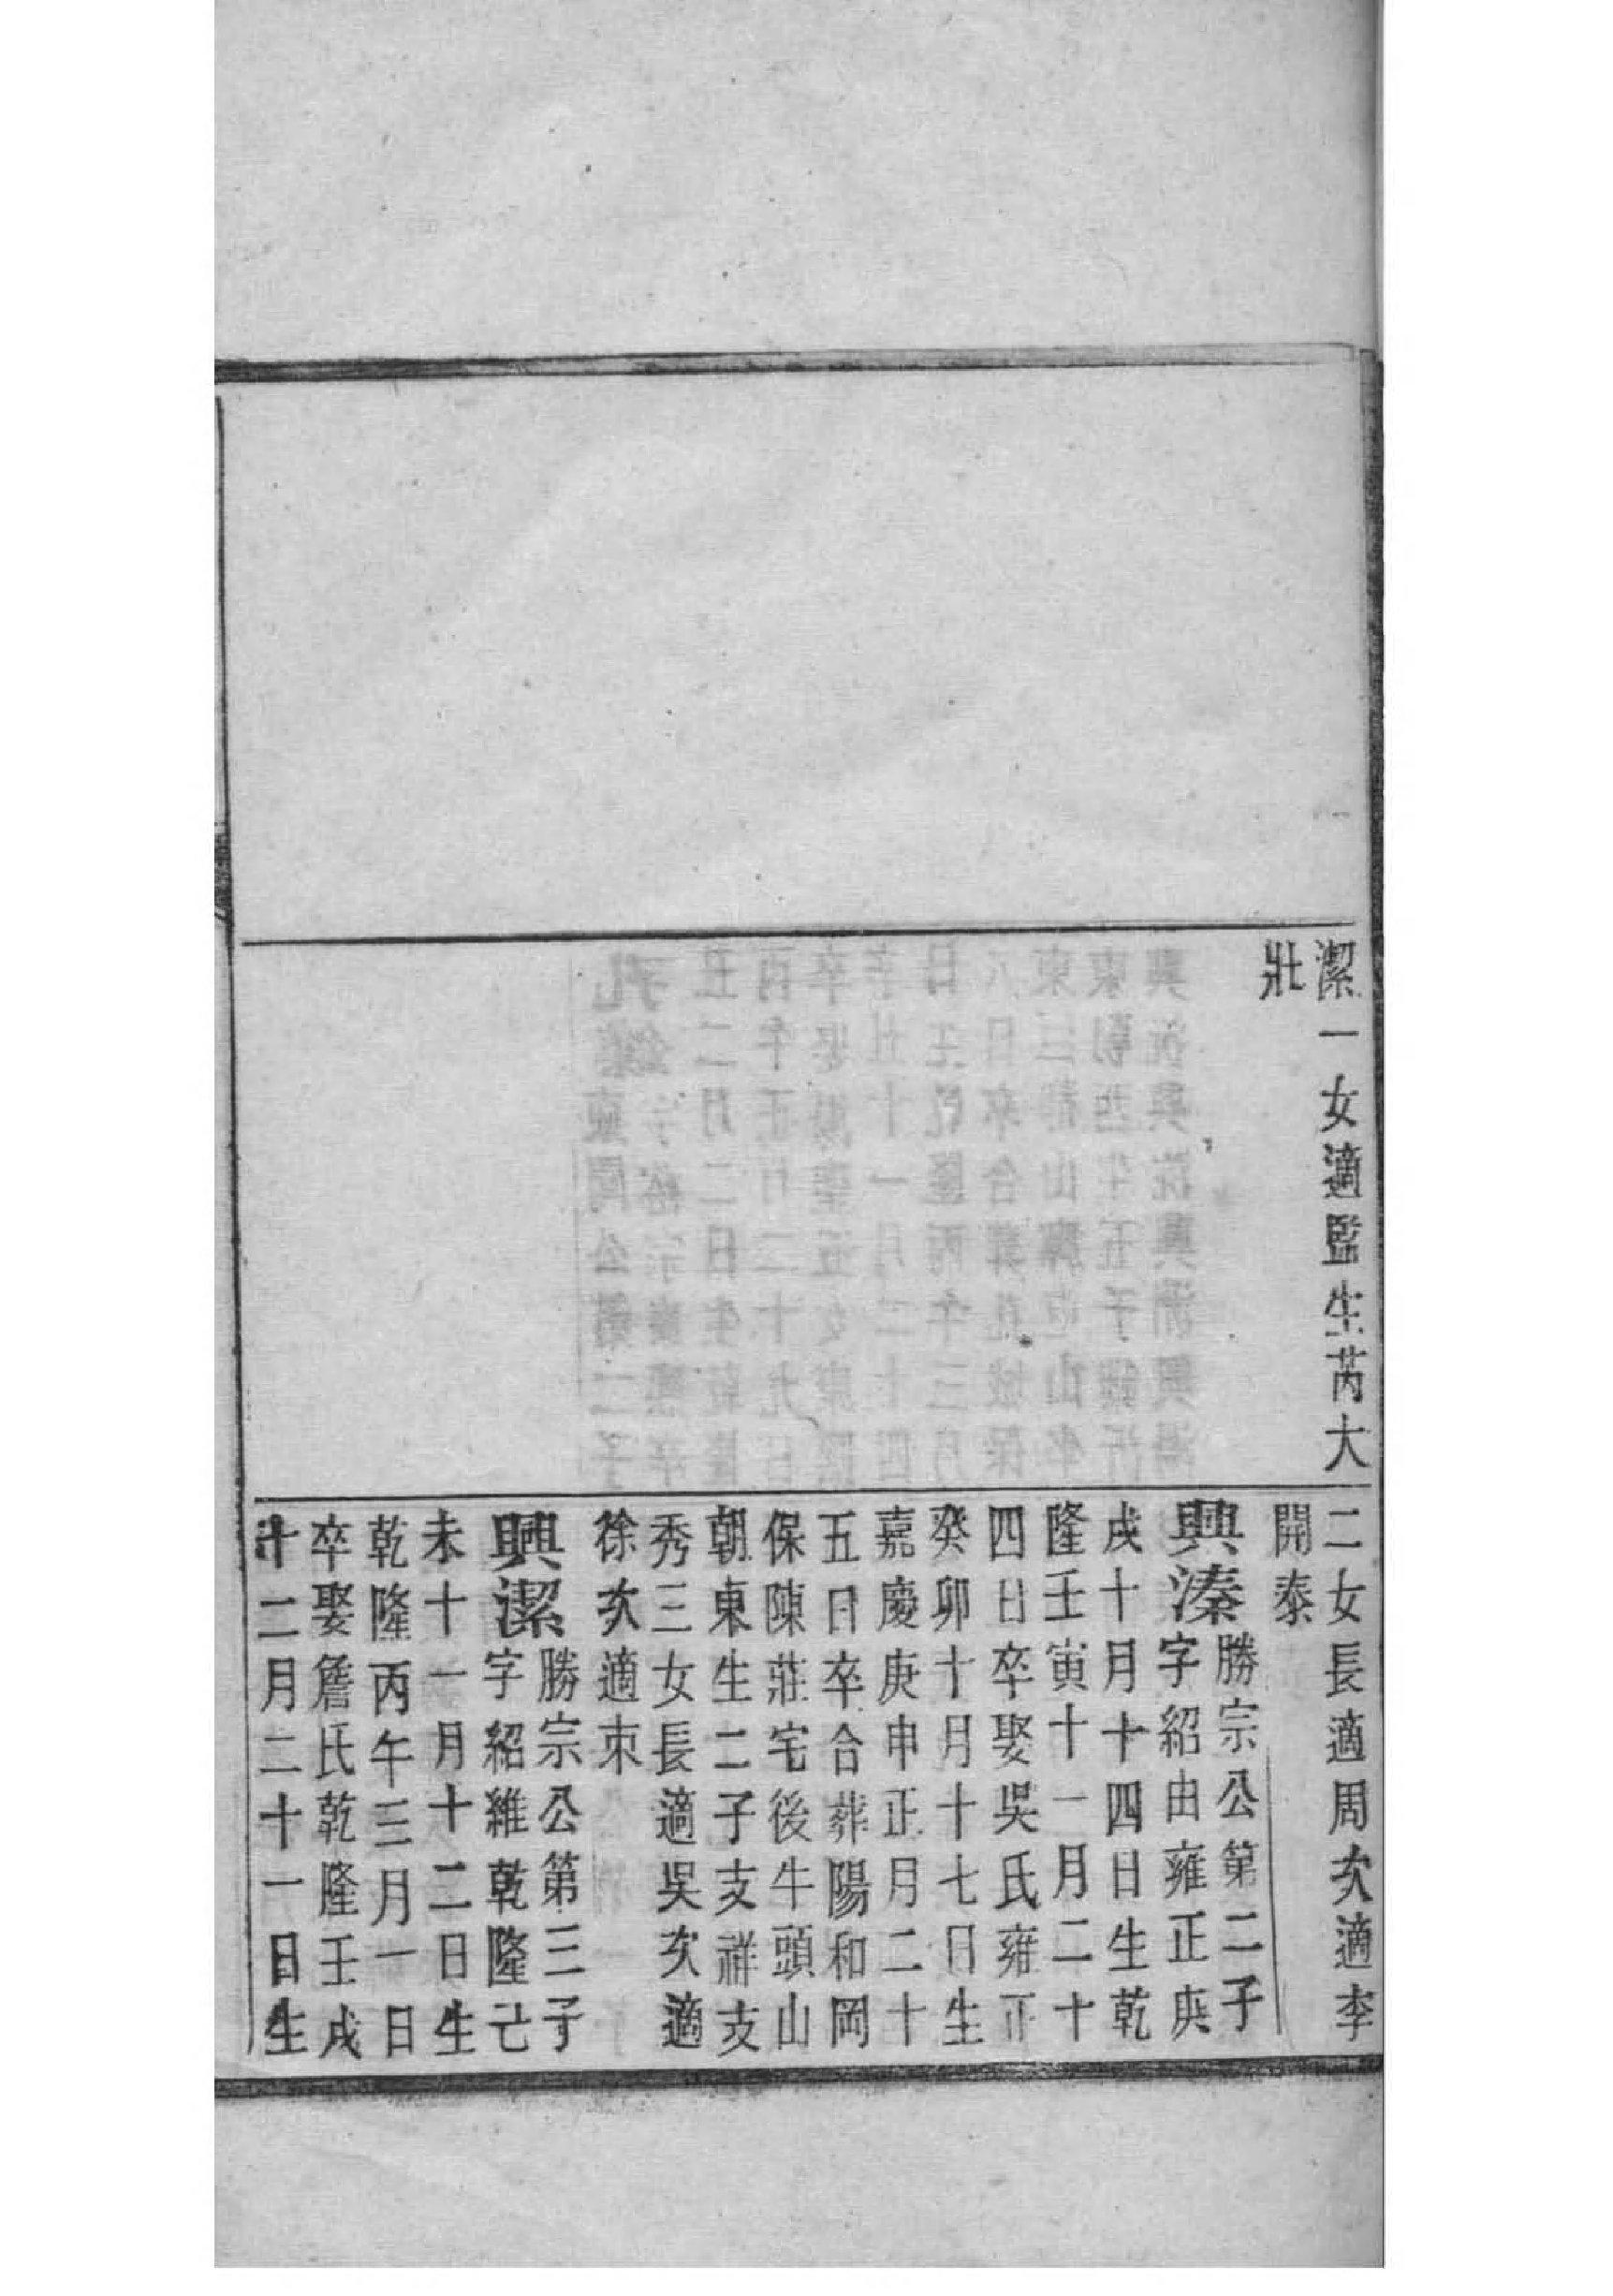 潔一女適監生芮大
壯
二女長適周次適李
開泰
興溱勝宗公第二子
字紹由雍正庚
戌十月十四日生乾
隆壬寅十一月二十
四日卒娶吳氏雍正
癸卯十月十七日生
嘉慶庚申正月二十
五日卒合葬陽和岡
保陳莊宅後牛頭山
朝東生二子支祥支
秀三女長適吳次適
徐次適束
興潔勝宗公第三子
字紹維乾隆己
未十一月十二日生
乾隆丙午三月一日
卒娶詹氏乾隆壬戌
十二月二十一日生